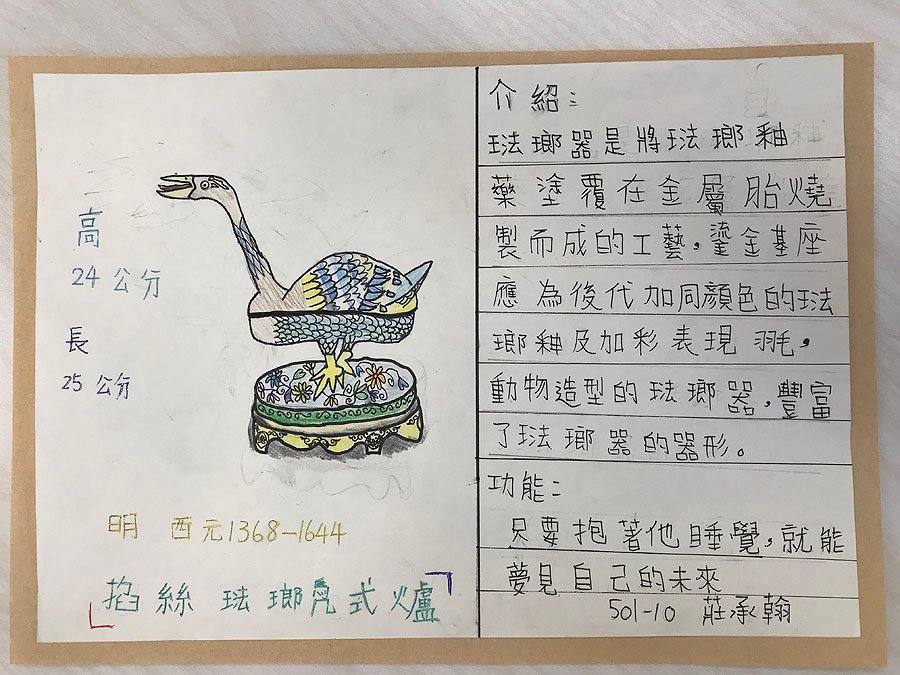 高
24公分
長
25公分
明 西元1368-1644
掐絲琺瑯鳧式爐
介紹:
琺瑯器是將琺瑯釉
藥塗覆在金屬胎燒
製而成的工藝,鎏金基座
應為後代加同顏色的琺
瑯釉及加彩表現羽毛,
動物造型的琺瑯器,豐富
了琺瑯器的器形。
功能:
只要抱著他睡覺,就能
夢見自己的未來
501-10 莊承翰